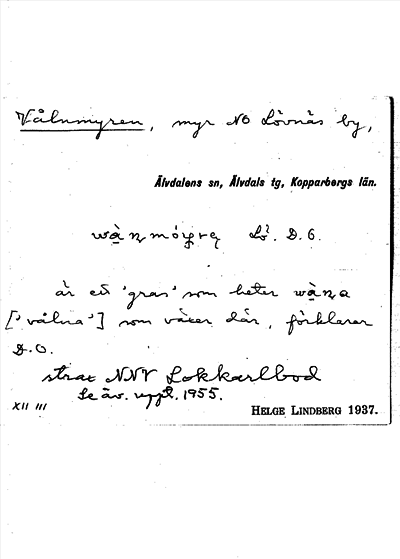 Vålnmyren, myr NO Lövnäs by,
Älvdalens sn, Älvdals tg, Kopparbergs län.
Lö. D. 6.
är ett 'gras' som heter
['vålna'] som växer där, förklarar
D.O.
strax NNV Lokkarlbod
Se äv. uppt. 1955.
XII III
HELGE LINDBERG 1937.